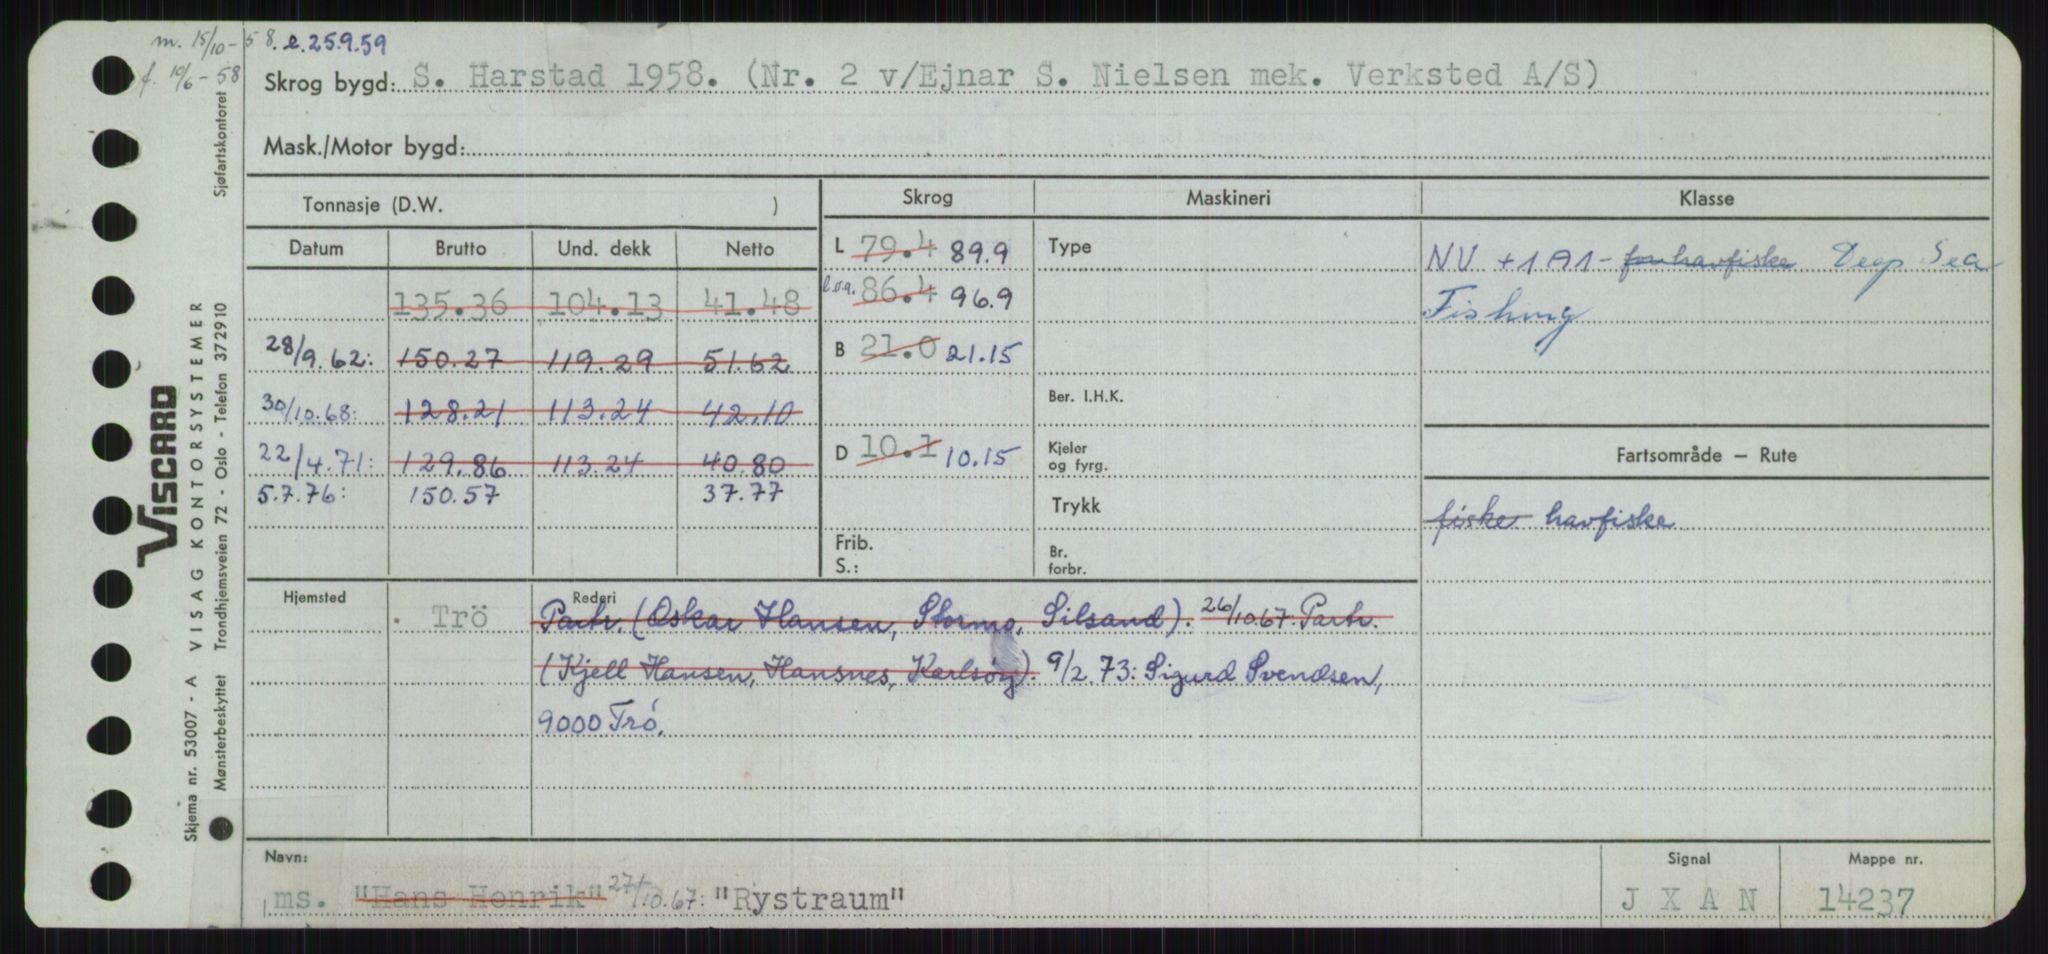 m. 15/10-58. e.25.9.59
f. 10/6-58
Skrog bygd: S. Harstad 1958. (Nr. 2 v/Ejnar S. Nielsen mek. Verksted A/S)
Mask./Motor bygd:
Tonnasje (D.W. )
Datum Brutto Und. dekk Netto
135.36 104.13 41.48
28/9.62: 150.27 119.29 51.62
30/10.68: 128.21 113.24 42.10
22/4.71: 129.86 113.24 40.80
5.7.76: 150.57 37.77
Skrog
L 79.4 89.9
l.o.a. 86.4 96.9
B 21.0 21.15
D 10.1 10.15
Frib.
S.:
Maskineri
Type
Ber. I.H.K.
Kjeler
og fyrg.
Trykk
Br.
forbr.
Klasse
NV +1A1- for havfiske Deep Sea
Fishing
Fartsområde – Rute
fiske havfiske
Hjemsted
Trö
Rederi
Partr. (Oskar Hansen, Stormo, Silsand). 26/10.67. Partr.
(Kjell Hansen, Hansnes, Karlsöy). 9/2.73: Sigurd Svendsen,
9000 Trö.
Navn:
ms. "Hans Henrik" 27/10.67: "Rystraum"
Signal
J X A N
Mappe nr.
14237
VISCARD
Skjema nr. 53007 - A VISAG KONTORSYSTEMER
Mønsterbeskyttet Trondhjemsveien 72 - Oslo - Telefon 372910
Sjøfartskontoret